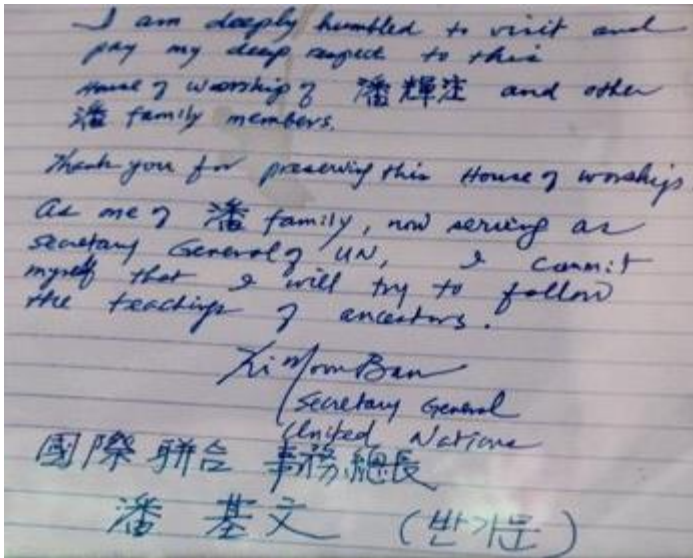 I am deeply humbled to visit and
pay my deep respect to this
House of worship of 潘輝注 and other
潘 family members.
Thank you for preserving this House of worship
As one of 潘 family, now serving as
Secretary General of UN, I commit
myself that I will try to follow
the teachings of ancestors.
Ki Moon Ban
Secretary General
United Nations
國際 聯合 事務總長
潘 基 文 (반기문)